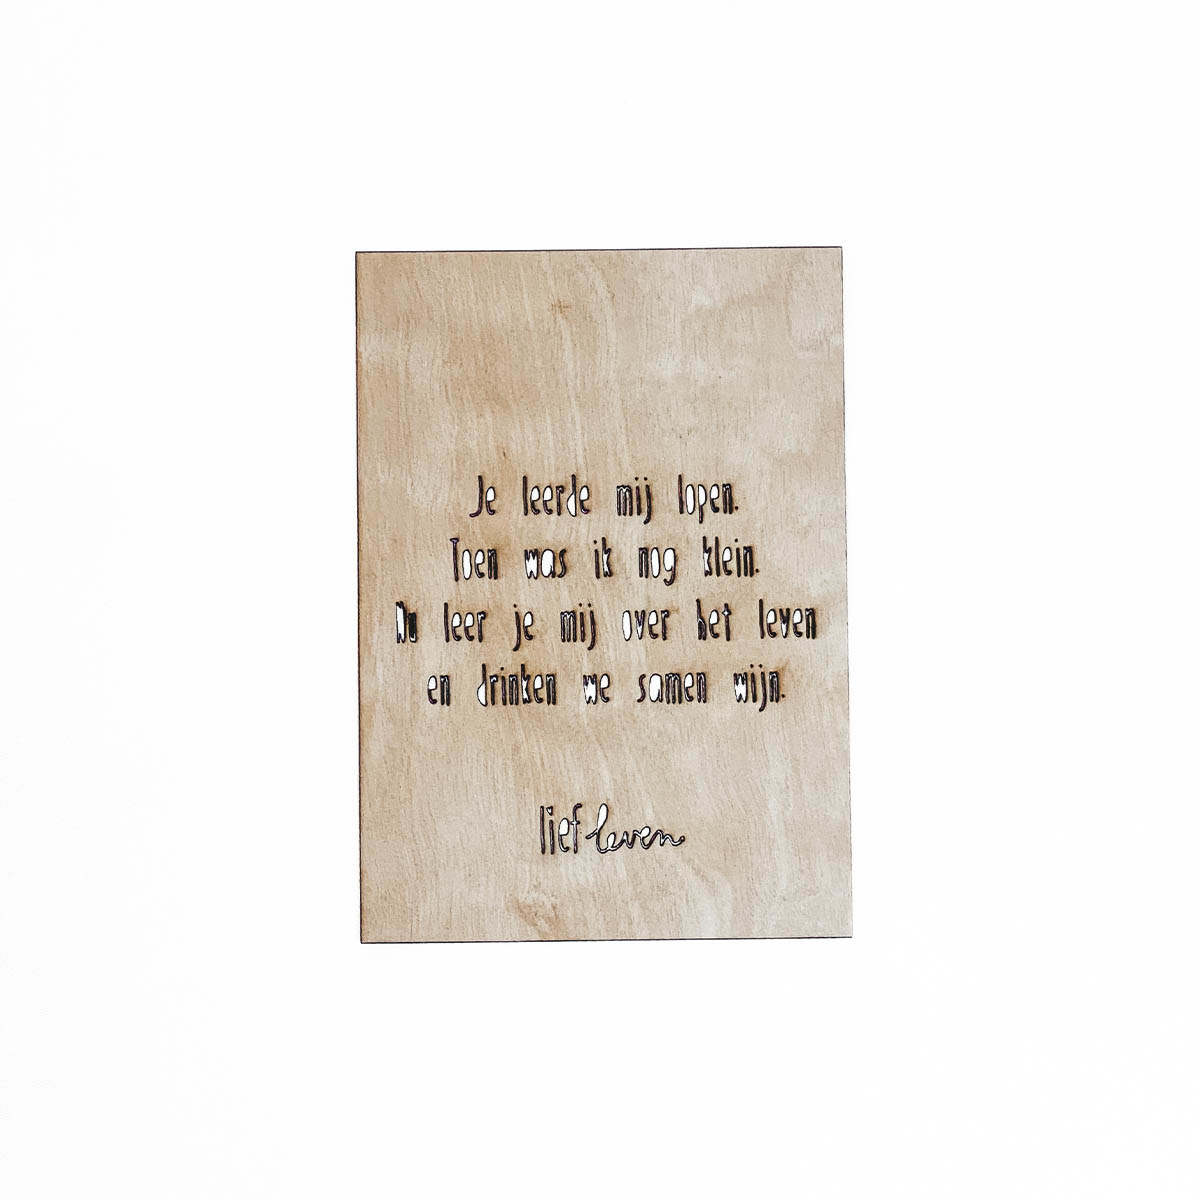 Je leerde mij lopen.
Toen was ik nog klein.
Nu leer je mij over het leven
en drinken we samen wijn.
lief leven